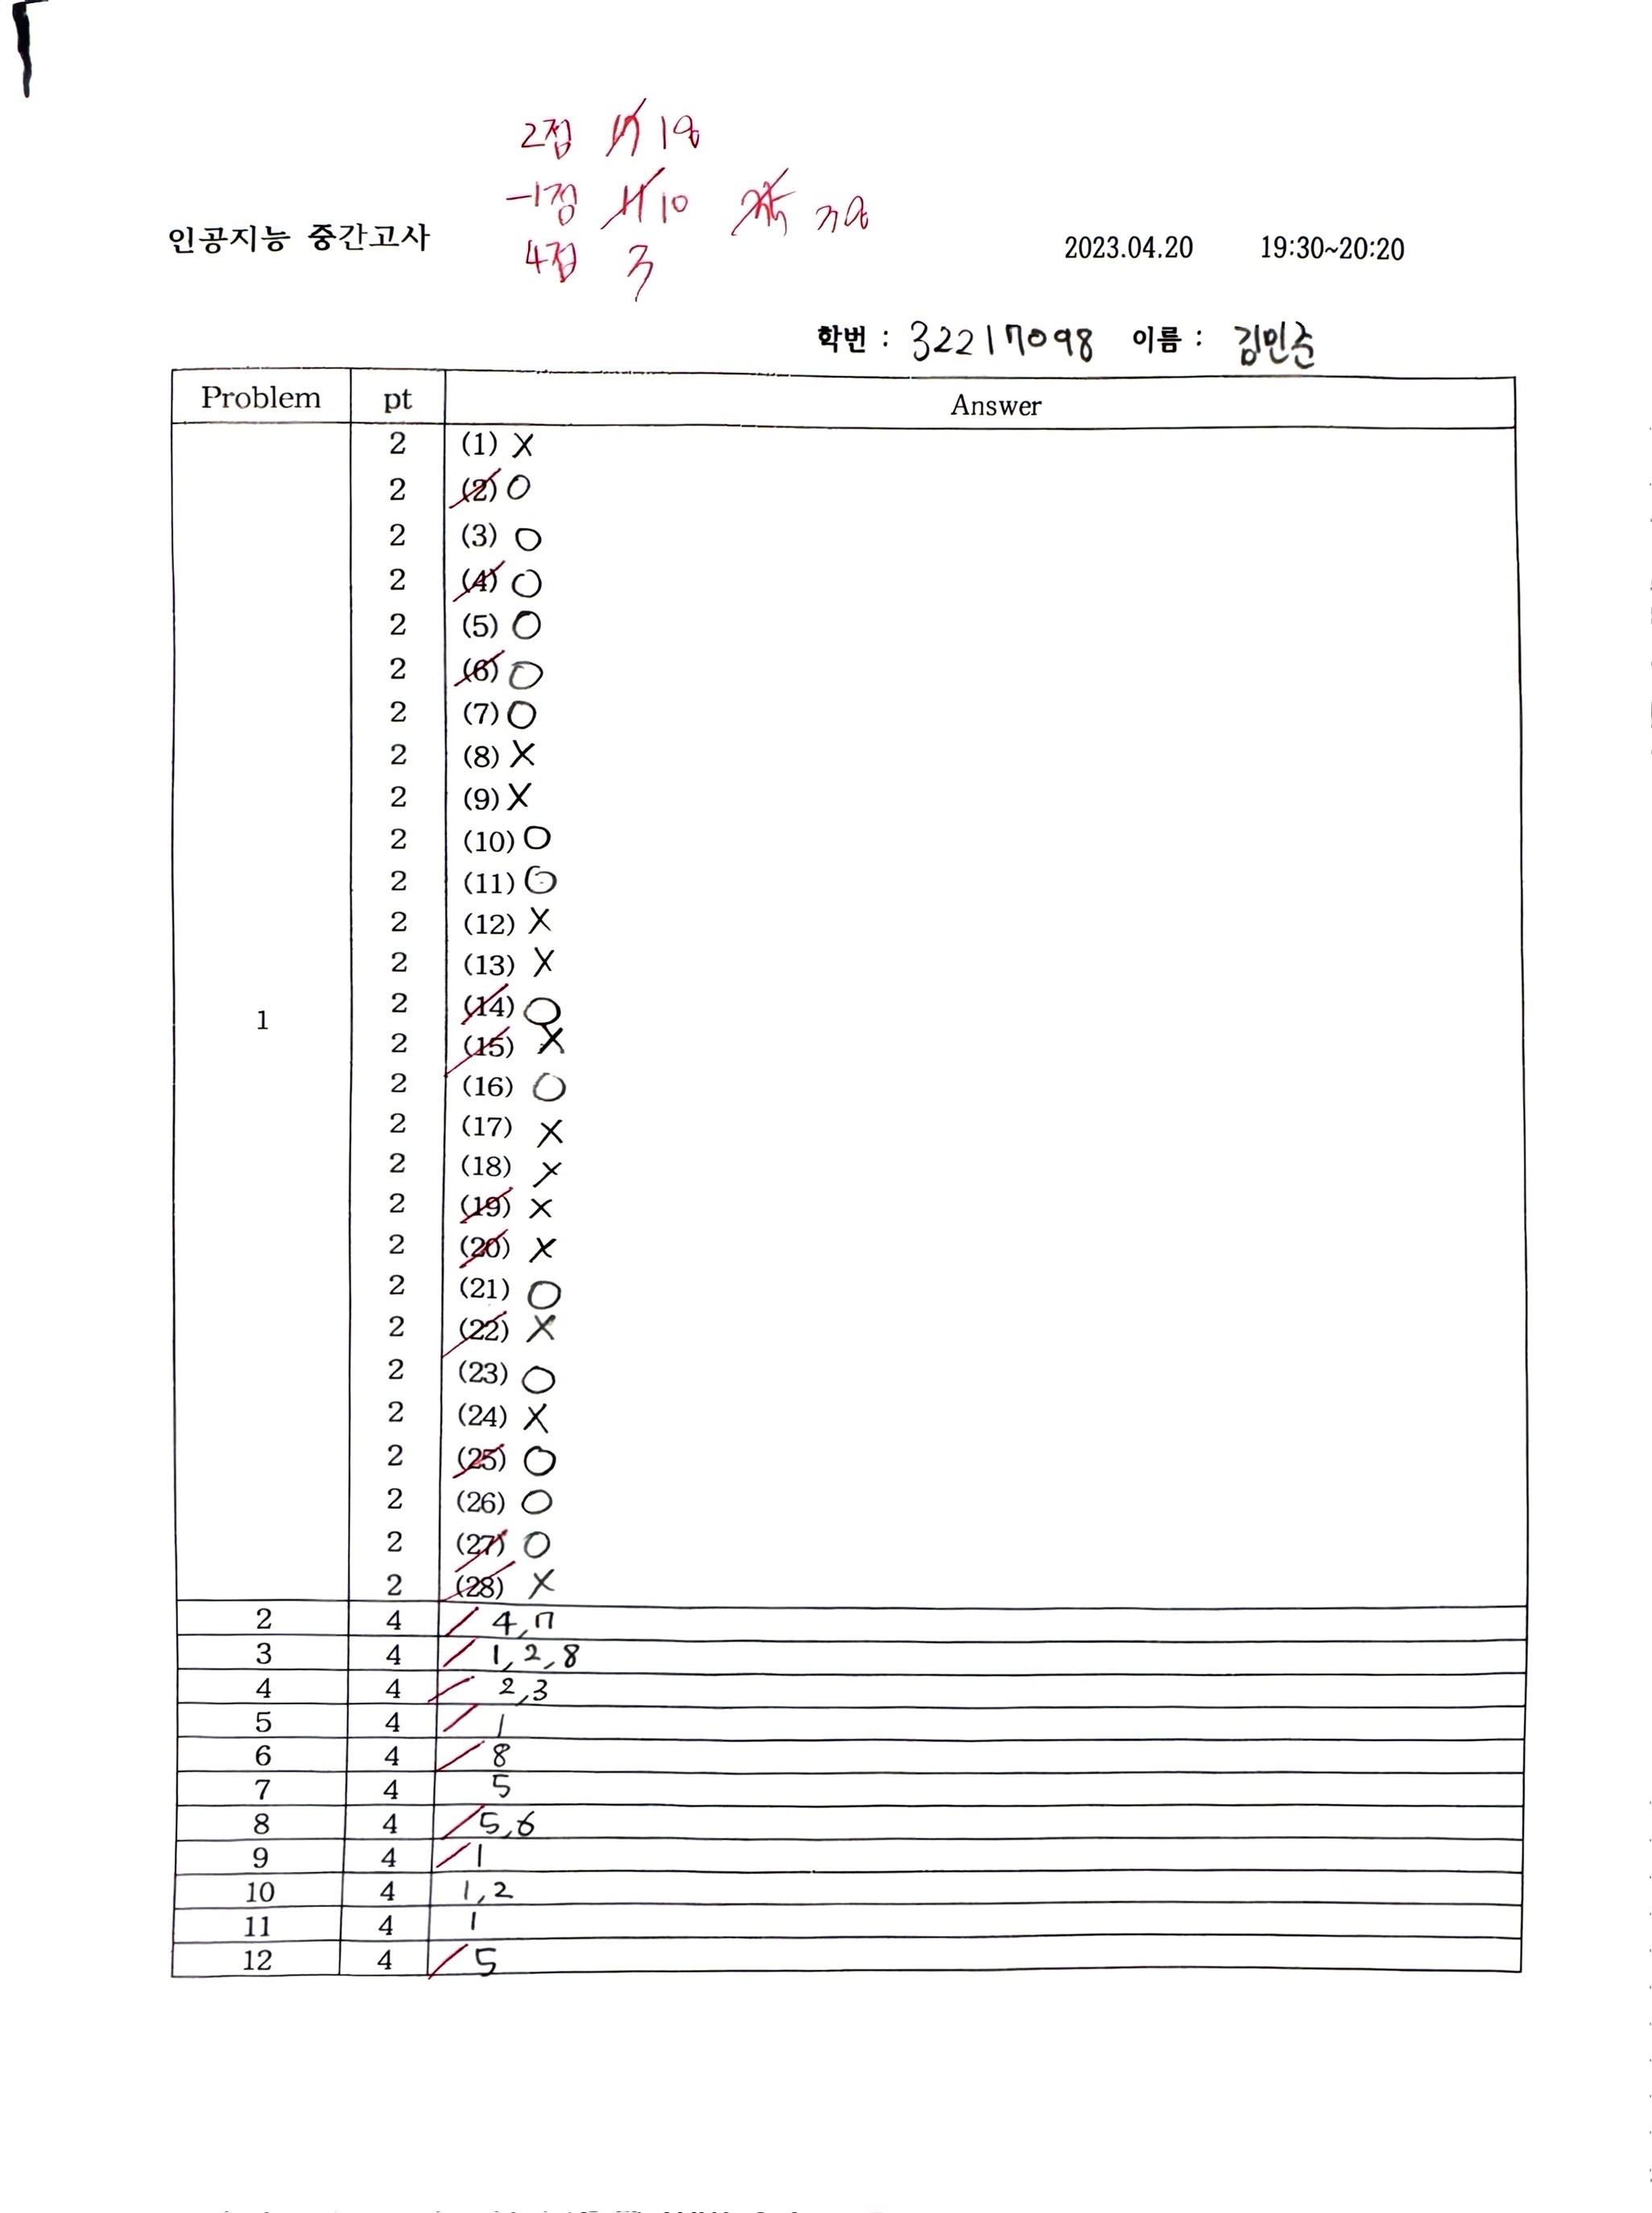 2점 17 18
-1점 11 10 38
인공지능 중간고사
4점 3
2023.04.20 19:30~20:20
학번 : 32217098 이름 : 김민준
Problem pt Answer
2 (1) X
2 (2) O
2 (3) O
2 (4) O
2 (5) O
2 (6) O
2 (7) O
2 (8) X
2 (9) X
2 (10) O
2 (11) O
2 (12) X
2 (13) X
2 (14) O
1
2 (15) X
2 (16) O
2 (17) X
2 (18) X
2 (19) X
2 (20) X
2 (21) O
2 (22) X
2 (23) O
2 (24) X
2 (25) O
2 (26) O
2 (27) O
2 (28) X
2 4 4, 7
3 4 1, 2, 8
4 4 2, 3
5 4 1
6 4 8
7 4 5
8 4 5, 6
9 4 1
10 4 1, 2
11 4 1
12 4 5